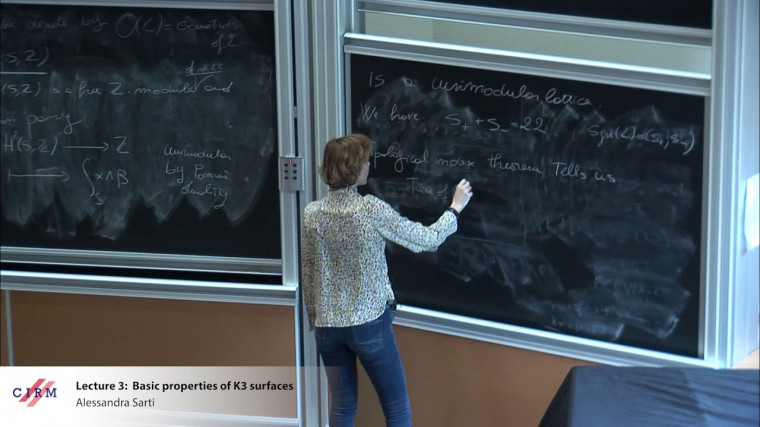 denote by O(L) = isometries
of L
(S,Z)
of rk 22
(S,Z) is a free Z-module and
pairing
H²(S,Z) → Z
∫ₛ α∧β
unimodular
by Poincaré
duality
Is a unimodular lattice.
We have S₊ + S₋ = 22 Sgn(L) = (S₊, S₋)
Topological index theorem Tells us
CIRM
Lecture 3: Basic properties of K3 surfaces
Alessandra Sarti